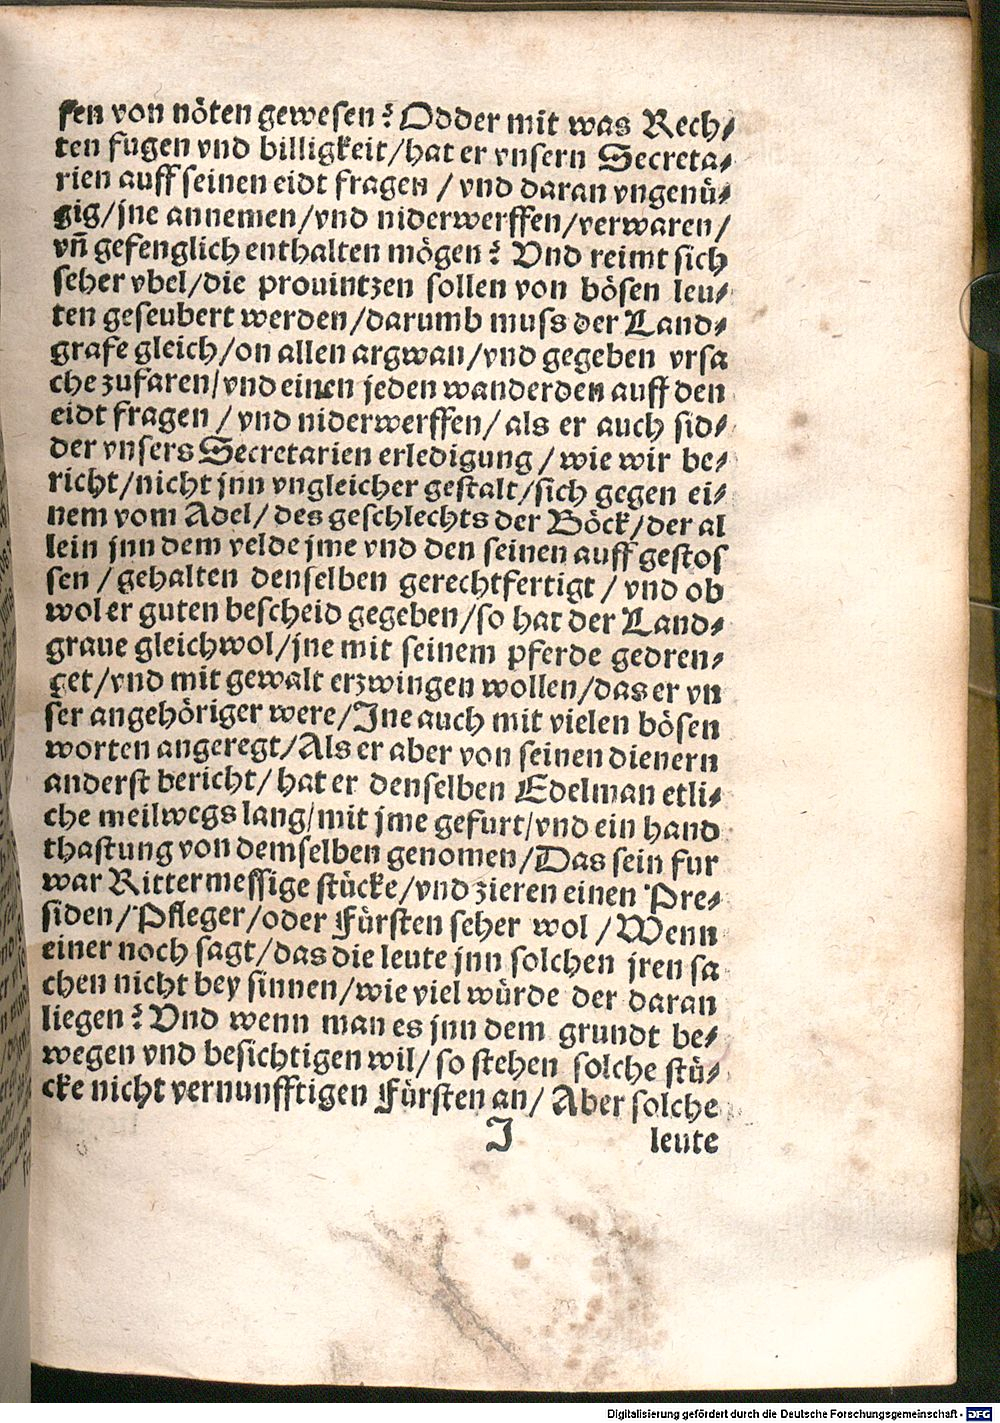 fen von nöten gewesen? Odder mit was Rech⸗
ten fugen vnd billigkeit/hat er vnsern Secreta⸗
rien auff seinen eidt fragen / vnd daran vngenü⸗
gig/jne annemen/vnd niderwerffen/verwaren/
vñ gefenglich enthalten mögen? Vnd reimt sich
seher vbel/die prouintzen sollen von bösen leu⸗
ten geseubert werden/darumb muss der Land⸗
grafe gleich/on allen argwan/vnd gegeben vrsa
che zufaren/vnd einen jeden wanderden auff den
eidt fragen / vnd niderwerffen/ als er auch sid⸗
der vnsers Secretarien erledigung / wie wir be⸗
richt/nicht jnn vngleicher gestalt/sich gegen ei⸗
nem vom Adel/ des geschlechts der Böck/der al
lein jnn dem velde jme vnd den seinen auff gestos
sen / gehalten denselben gerechtfertigt / vnd ob
wol er guten bescheid gegeben/so hat der Land⸗
graue gleichwol/jne mit seinem pferde gedren⸗
get/vnd mit gewalt erzwingen wollen/das er vn
ser angehöriger were/Jne auch mit vielen bösen
worten angeregt/Als er aber von seinen dienern
anderst bericht/ hat er denselben Edelman etli⸗
che meilwegs lang/mit jme gefurt/vnd ein hand
thastung von demselben genomen/Das sein fur
war Rittermessige stücke/vnd zieren einen Pre⸗
siden/Pfleger/oder Fürsten seher wol / Wenn
einer noch sagt/das die leute jnn solchen jren sa
chen nicht bey sinnen/wie viel würde der daran
liegen? Vnd wenn man es jnn dem grundt be⸗
wegen vnd besichtigen wil/ so stehen solche stü⸗
cke nicht vernunfftigen Fürsten an/ Aber solche
J leute
Digitalisierung gefördert durch die Deutsche Forschungsgemeinschaft - DFG